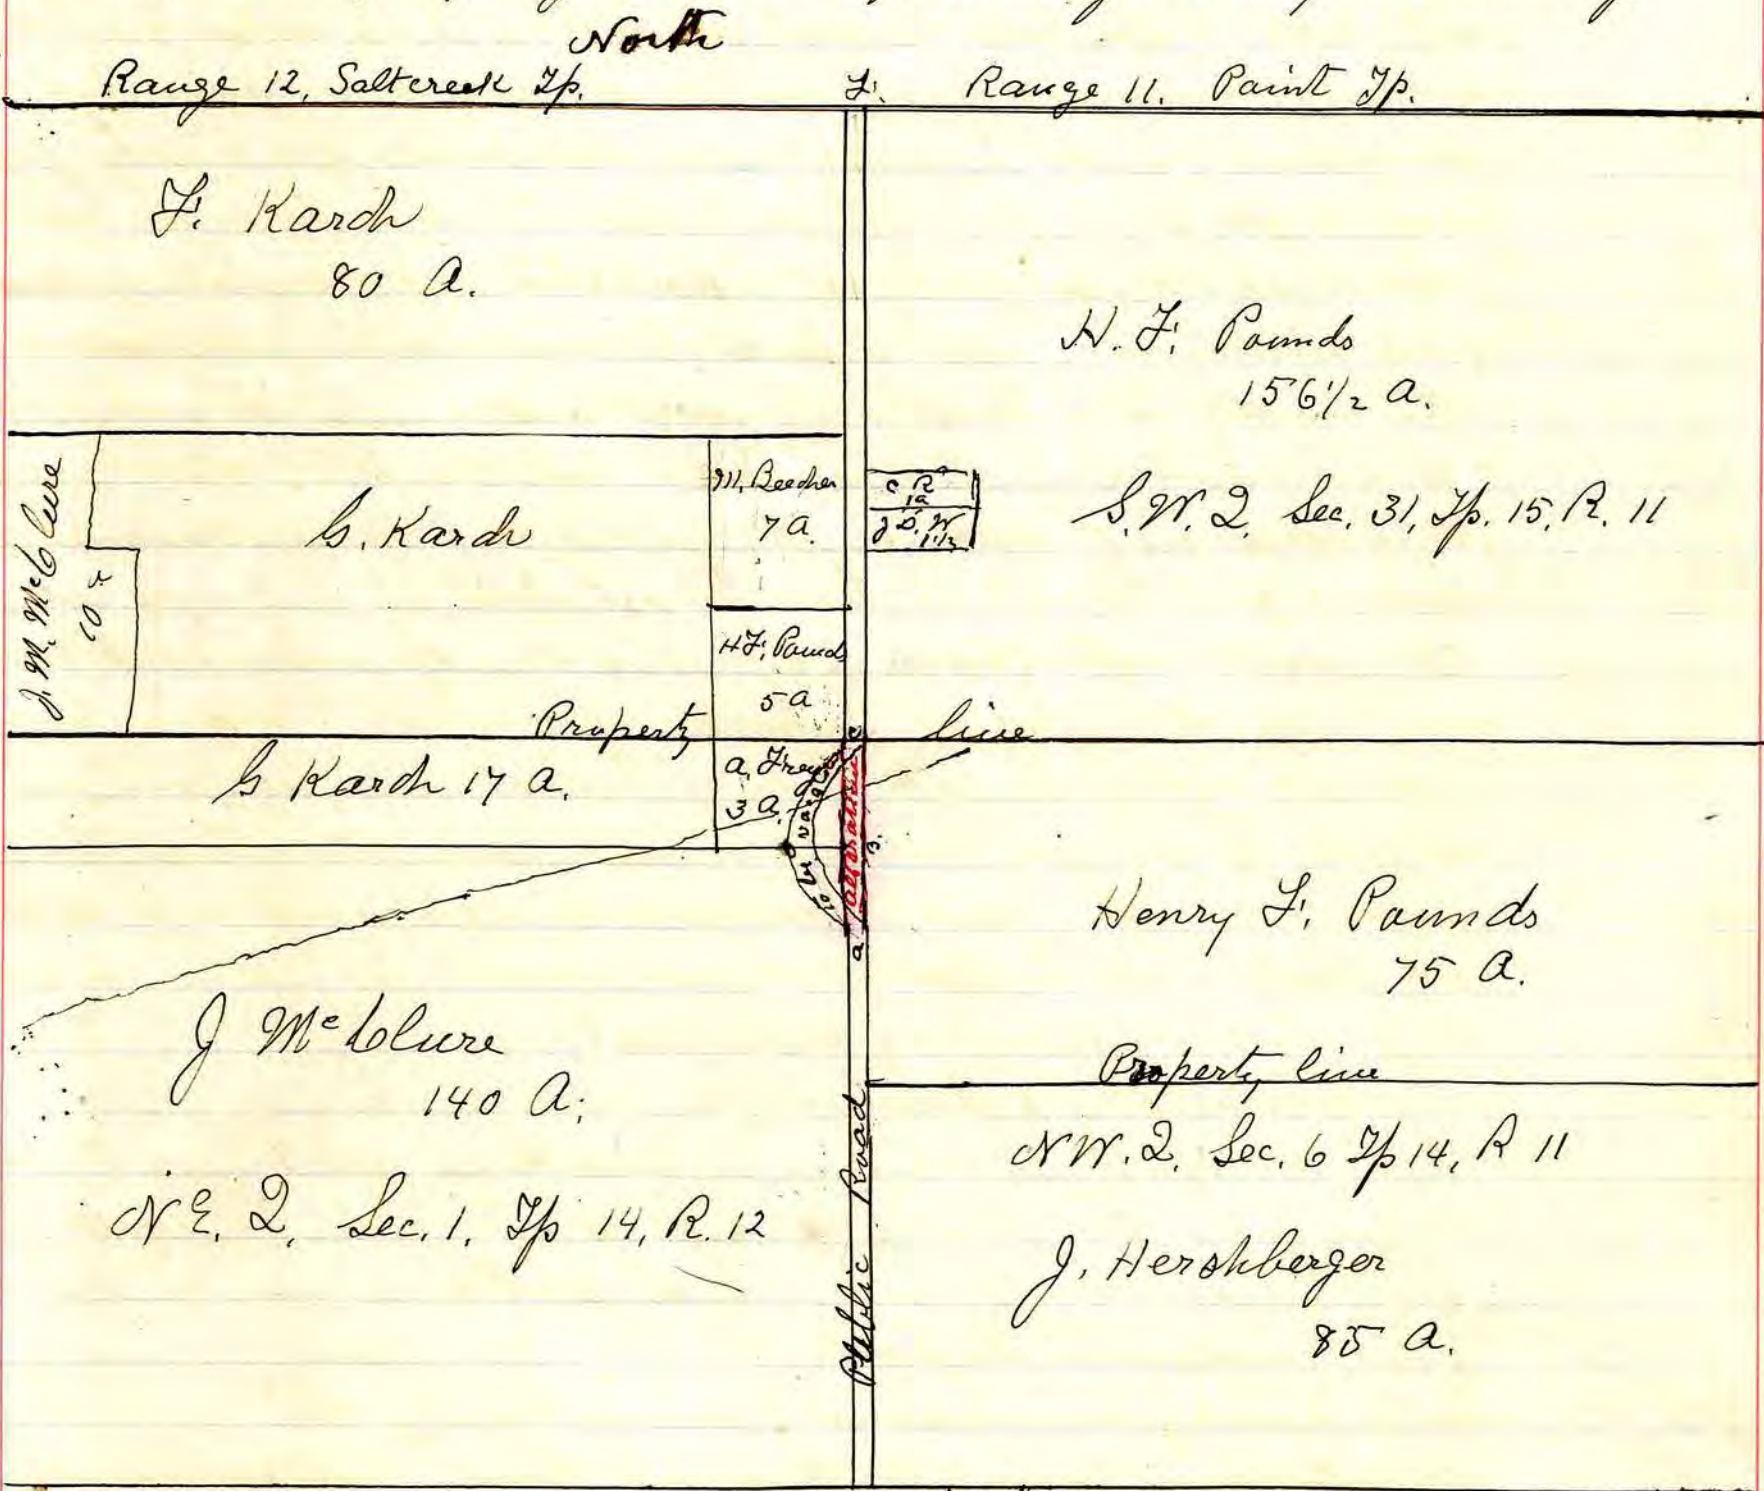 North
Range 12, Saltcreek Tp.
Range 11. Paint Tp.
F. Karch
80 A.
H. F. Pounds
156 1/2 A.
S.W. Q. Sec. 31, Tp. 15, R. 11
J. M. McClure
10
G. Karch
M. Beecher
7 A.
C R
1a
J D. W
1 1/2
H F. Pounds
5 a
Property line
G Karch 17 A.
A. Frey
3 A.
to be vacated
alteration
C
B.
a
Henry F. Pounds
75 A.
Property line
J McClure
140 A.
N E. Q. Sec. 1. Tp 14, R. 12
Public Road
N W. Q. Sec. 6 Tp 14, R 11
J. Hershberger
85 A.